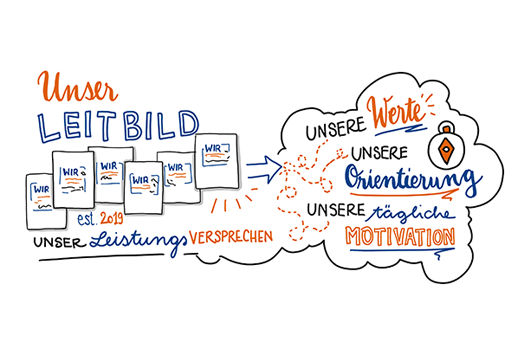 Unser
LEITBILD
WIR
WIR
WIR
WIR
WIR
WIR
est. 2019
UNSER LeistungsVERSPRECHEN
UNSERE Werte
UNSERE
Orientierung
UNSERE tägliche
MOTIVATION